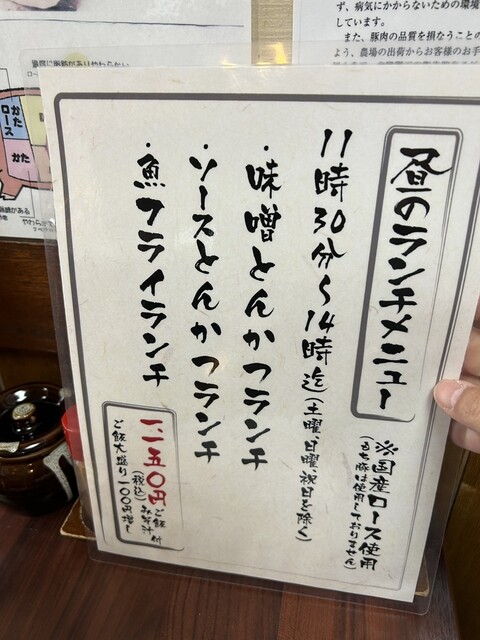 昼のランチメニュー
※国産ロース使用
(もち豚は使用しておりません)
11時30分〜14時迄(土曜、日曜、祝日を除く)
・味噌とんかつランチ
・ソースとんかつランチ
・魚フライランチ
一、一五〇円
(税込)
ご飯
みそ汁
付
ご飯大盛り一〇〇円増し
ず、病気にかからないための環境
しています。
また、豚肉の品質を損なうことの
よう、農場の出荷からお客様のお手
かた
ロース
かた